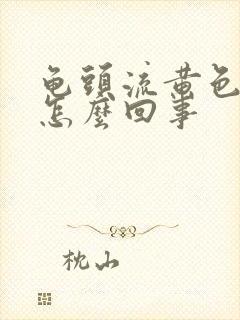 龟頭流黄色
怎麽回事
枕山